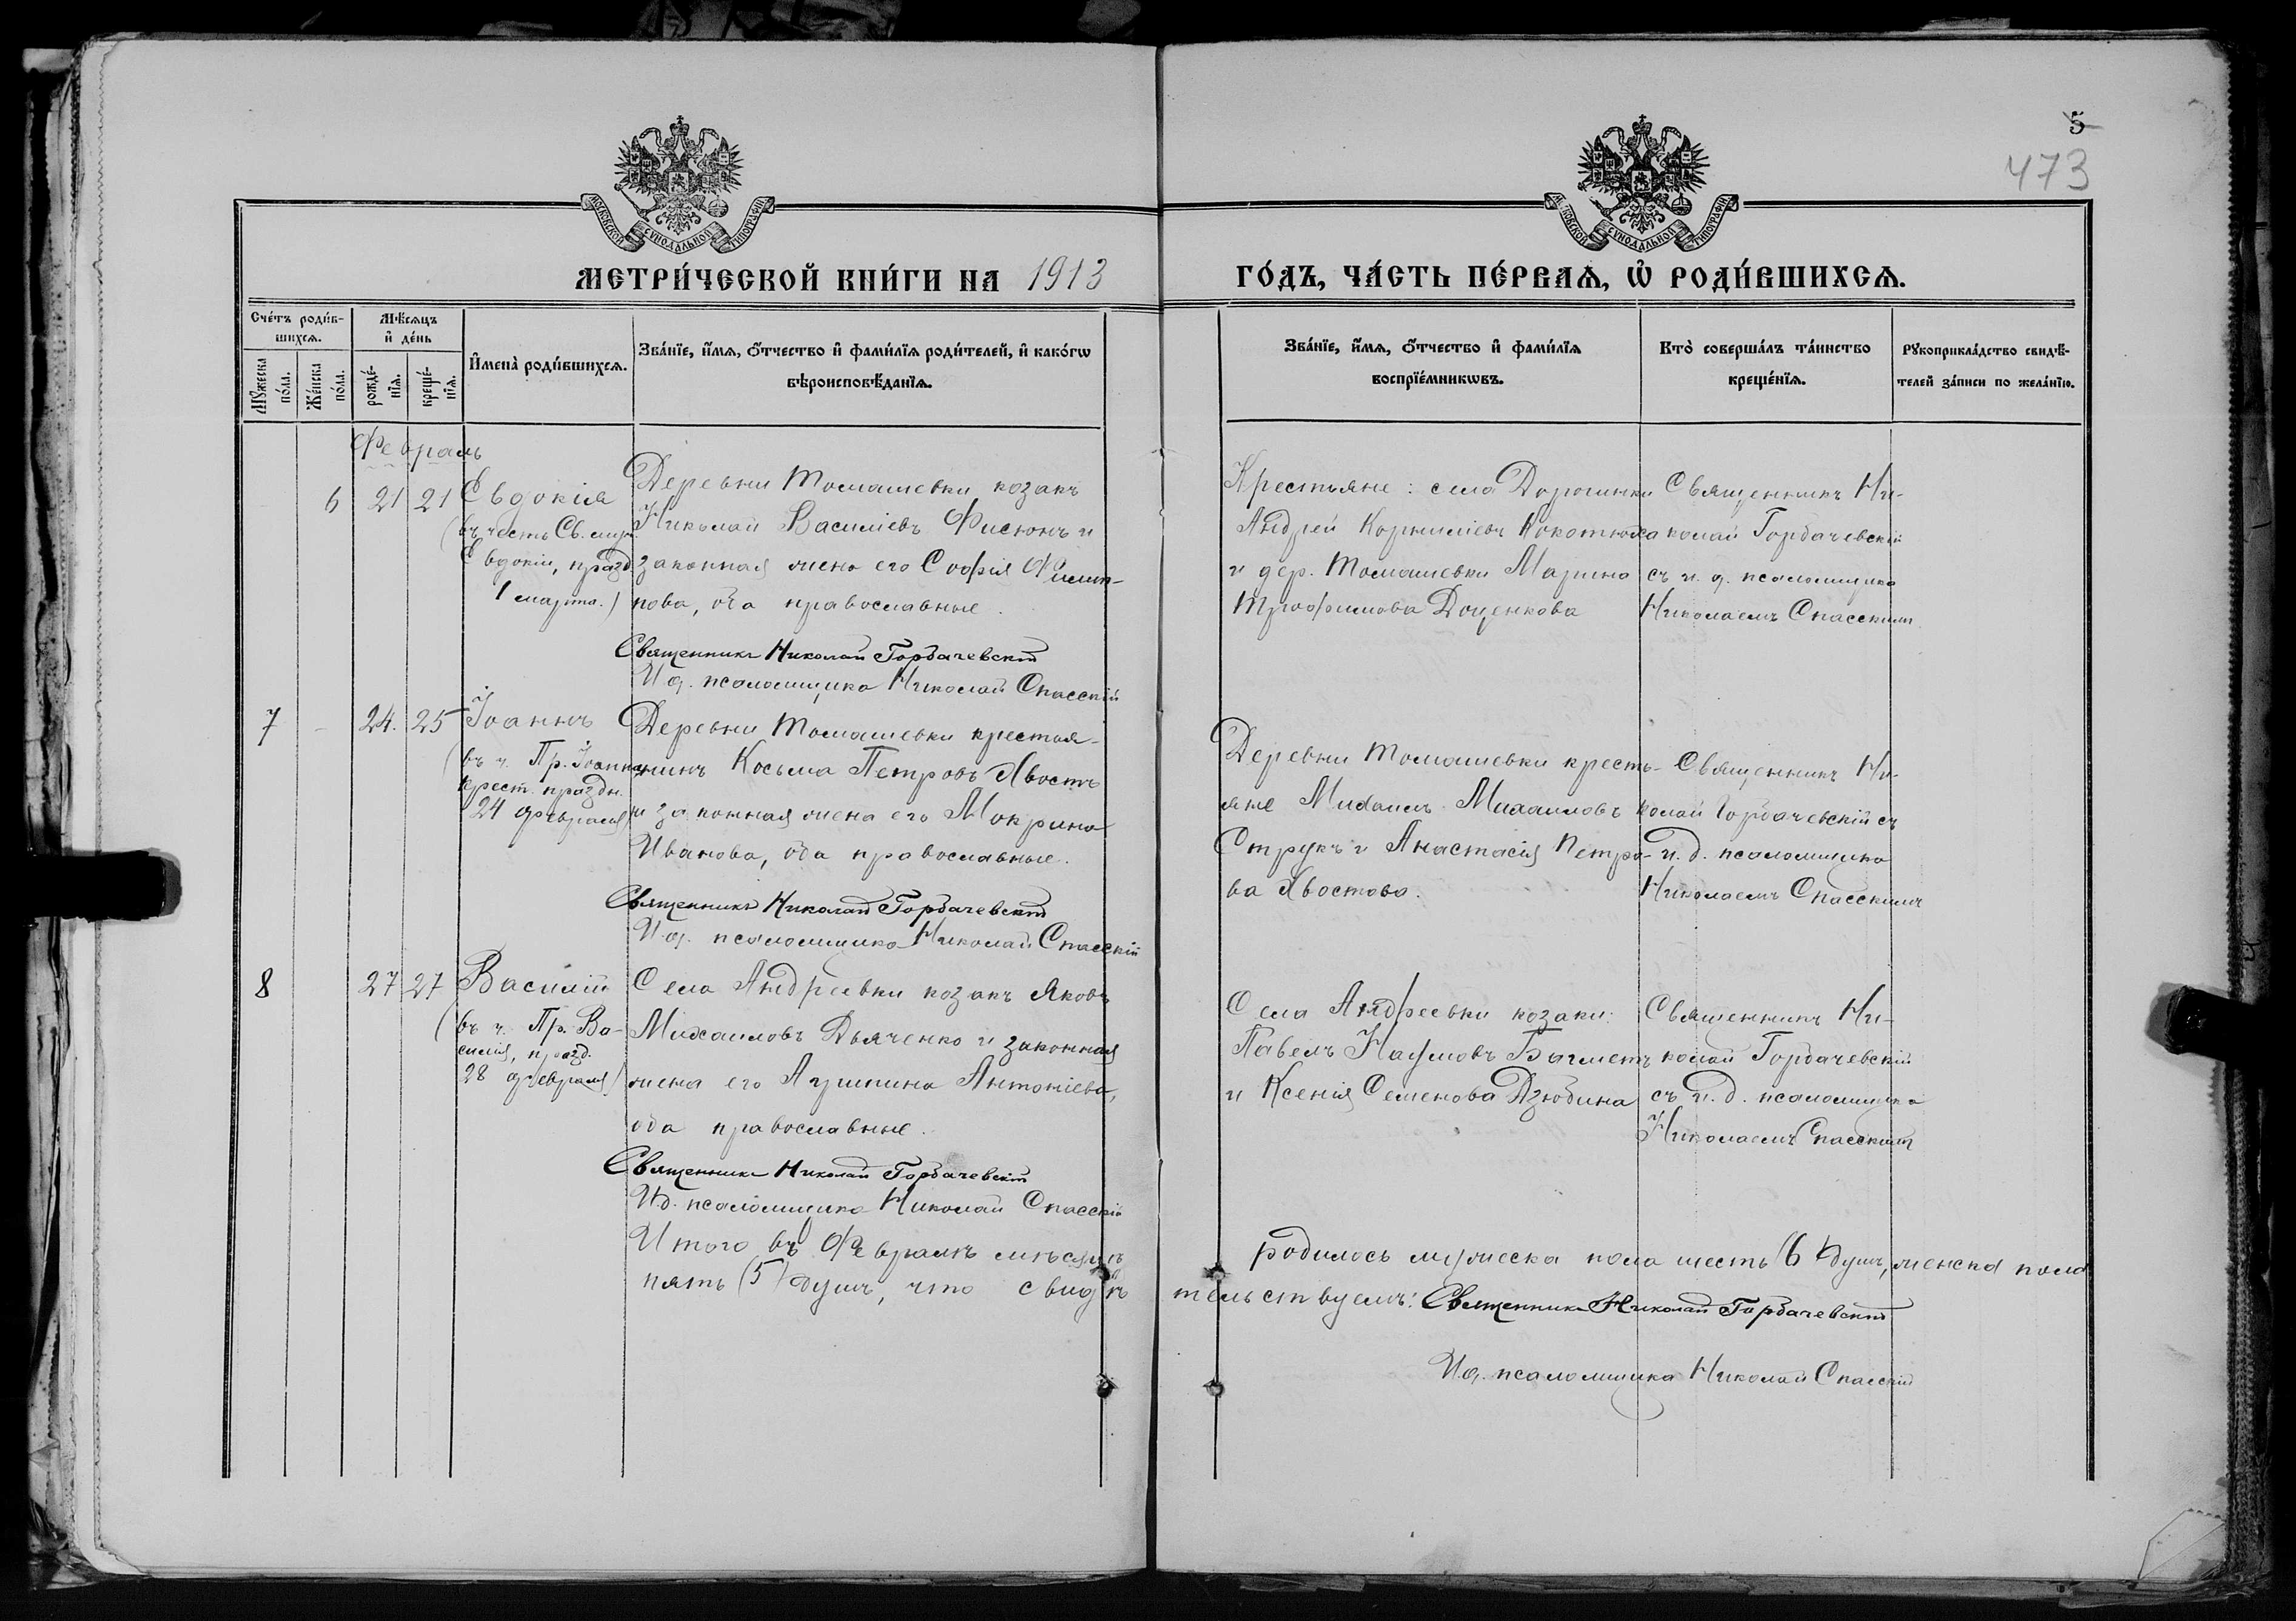 5
473
МОСКОВСКОЙ СѴНОДАЛЬНОЙ ТИПОГРАФІИ
МОСКОВСКОЙ СѴНОДАЛЬНОЙ ТИПОГРАФІИ
МЕТРИ́ЧЕСКОЙ КНИ́ГИ НА 1913 ГО́ДЪ, ЧА́СТЬ ПЕ́РВАѦ, Ѡ҆ РОДИ́ВШИХСѦ.
Сче́тъ роди́в-
шихсѧ.
Мꙋжеска по́ла.
Же́нска по́ла.
Мѣ́сѧцъ
и҆ де́нь
рожде́-
нїѧ.
креще́-
нїѧ.
И҆мена̀ роди́вшихсѧ.
Зва́нїе, и҆́мѧ, ѻ҆́тчество и҆ фами́лїѧ роди́телей, и҆ како́гѡ
вѣроисповѣ́данїѧ.
Зва́нїе, и҆́мѧ, ѻ҆́тчество и҆ фами́лїѧ
воспрїе́мникѡвъ.
Кто̀ соверша́лъ та́инство
креще́нїѧ.
Рꙋкоприкла́дство свидѣ́-
телей за́писи по жела́нїю.
Февраль
6 21 21
Евдокія
(въ честь Св. муч.
Евдокіи, празд.
1 марта.)
Деревни Томашевки козакъ
Николай Василіевъ Фисюнъ и
законная жена его Софія Филип-
пова, оба православные.
Священникъ Николай Горбачевскій
И. д. псаломщика Николай Спасскій
Крестьяне: села Дорогинки
Андрей Корниліевъ Кокотюха
и дер. Томашевки Марина
Трофимова Доценкова
Священникъ Ни-
колай Горбачевскій
съ и. д. псаломщика
Николаемъ Спасскимъ
7 - 24. 25
Іоаннъ
(въ ч. Пр. Іоанна
Крест. праздн.
24 февраля)
Деревни Томашевки крестья-
нинъ Косьма Петровъ Хвостъ
и законная жена его Мокрина
Иванова, оба православные.
Священникъ Николай Горбачевскій
И. д. псаломщика Николай Спасскій
Деревни Томашевки кресть-
яне Михаилъ Михаиловъ
Струкъ и Анастасія Петро-
ва Хвостова.
Священникъ Ни-
колай Горбачевскій съ
и. д. псаломщика
Николаемъ Спасскимъ
8 27 27
Василій
(въ ч. Пр. Ва-
силія, празд.
28 февраля)
Села Андреевки козакъ Яковъ
Михаиловъ Дьяченко и законная
жена его Агрипина Антоніева,
оба православные.
Священникъ Николай Горбачевскій
И. д. псаломщика Николай Спасскій
Села Андреевки козаки:
Павелъ Наумовъ Багметъ
и Ксенія Семенова Дзюбина
Священникъ Ни-
колай Горбачевскій
съ и. д. псаломщика
Николаемъ Спасскимъ
Итого въ Февралѣ мѣсяцѣ родилось мужеска пола шесть (6) душъ, женска пола
пять (5) душъ, что свидѣтельствуемъ: Священникъ Николай Горбачевскій
И. д. псаломщика Николай Спасскій